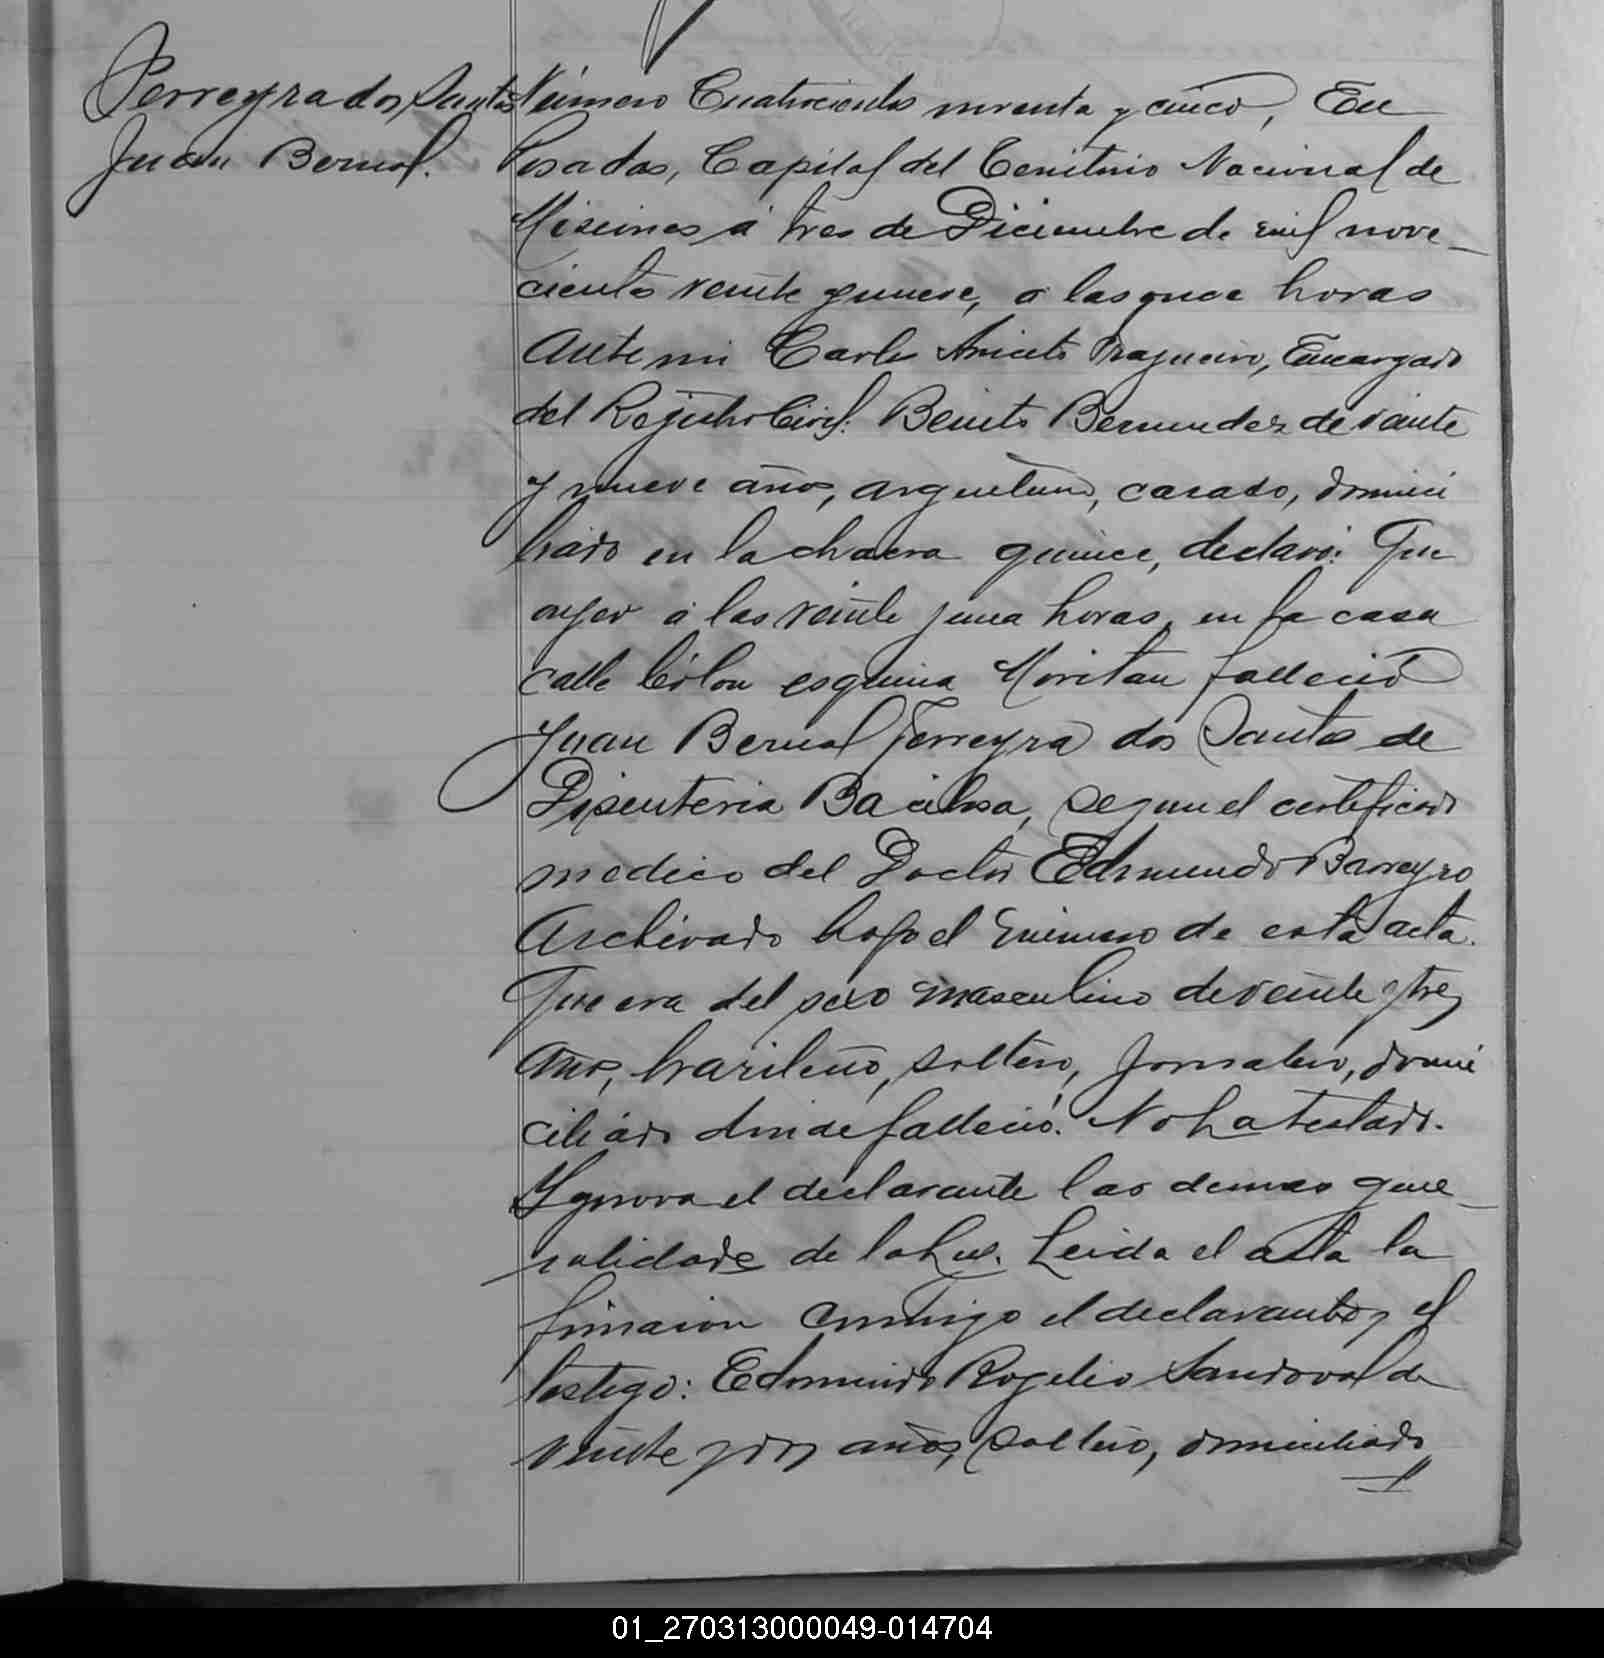 Ferreyra dos Santos
Juan Bernal.
Número Cuatrocientos noventa y cinco, En
Posadas, Capital del Territorio Nacional de
Misiones á tres de Diciembre de mil nove-
cientos veinte y nueve, á las once horas
Ante mi Carlos Aniceto Fragueiro, Encargado
del Rejistro Civil: Benito Bermudez de veinte
y nueve años, argentino, casado, domici
liado en la chacra quince, declaró: Que
ayer á las veinte y una horas, en la casa
calle Cólon esquina Moritan falleció
Juan Bernal Ferreyra dos Santos de
Disenteria Bacilosa, segun el certificado
medico del Doctor Edmundo Barreyro
Archivado bajo el número de esta acta.
Que era del sexo masculino de veinte y tres
años, brasileño, soltero, jornalero, domi
ciliado donde falleció. No ha testado.
Ygnora el declarante las demas gene-
ralidades de la Ley. Leida el acta la
firmaron conmigo el declarante y el
testigo: Edmundo Rogelio Sandoval de
veinte y dos años, soltero, domiciliado
01_270313000049-014704